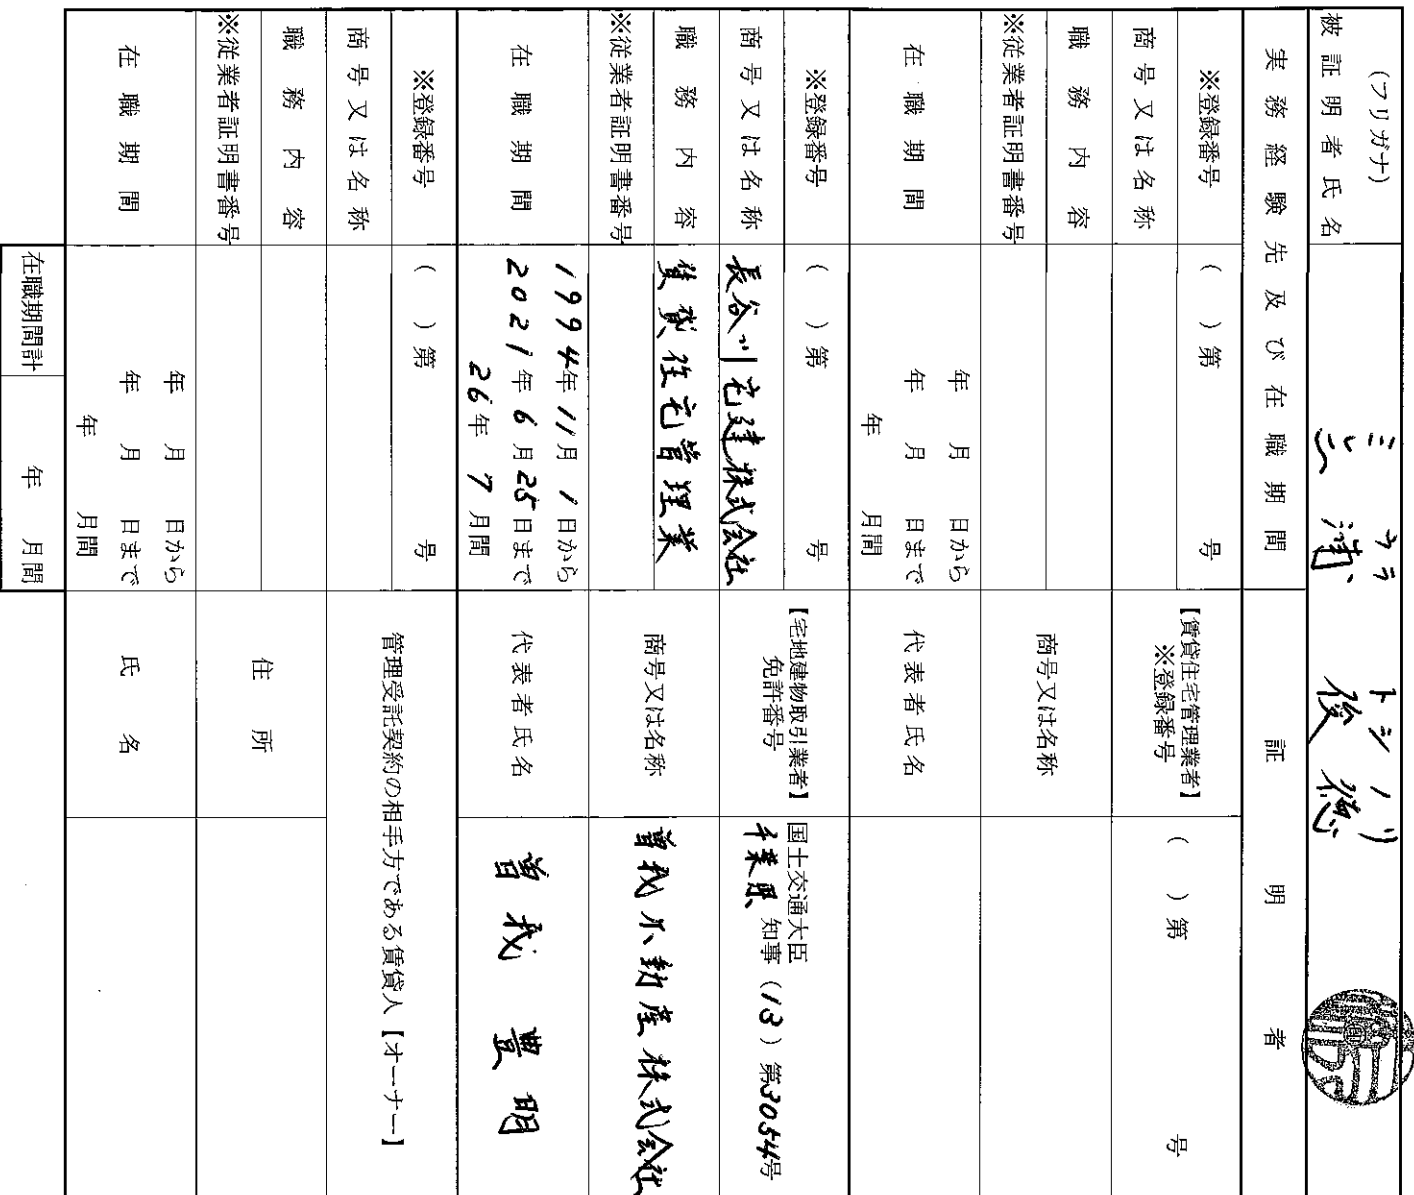 (フリガナ) ミウラ トシノリ
被証明者氏名 三浦 俊徳
実務経験先及び在職期間 証明者
※登録番号 ( )第 号
【賃貸住宅管理業者】
※登録番号 ( )第 号
商号又は名称
職務内容
商号又は名称
※従業者証明書番号
在職期間
年 月 日から
年 月 日まで
年 月間
代表者氏名
※登録番号 ( )第 号
【宅地建物取引業者】
免許番号
国土交通大臣
千葉県 知事 (13)第3054号
商号又は名称 長谷川宅建株式会社
職務内容 賃貸住宅管理業
商号又は名称 曽我不動産株式会社
※従業者証明書番号
在職期間
1994年11月1日から
2021年6月25日まで
26年7月間
代表者氏名 曽我豊明
※登録番号 ( )第 号
管理受託契約の相手方である賃貸人【オーナー】
商号又は名称
職務内容
住所
※従業者証明書番号
在職期間
年 月 日から
年 月 日まで
年 月間
氏名
在職期間計 年 月間